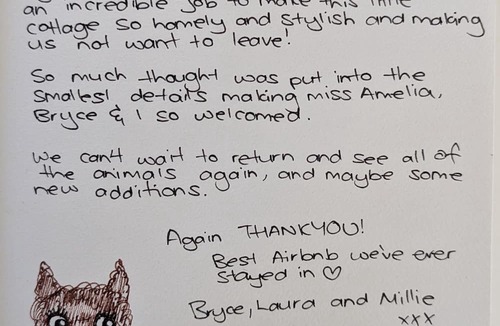 an incredible job to make this little
cottage so homely and stylish and making
us not want to leave!
So much thought was put into the
smallest details making miss Amelia,
Bryce & I so welcomed.
We can't wait to return and see all of
the animals again, and maybe some
new additions.
Again THANKYOU!
Best Airbnb we've ever
stayed in ♡
Bryce, Laura and Millie
xxx